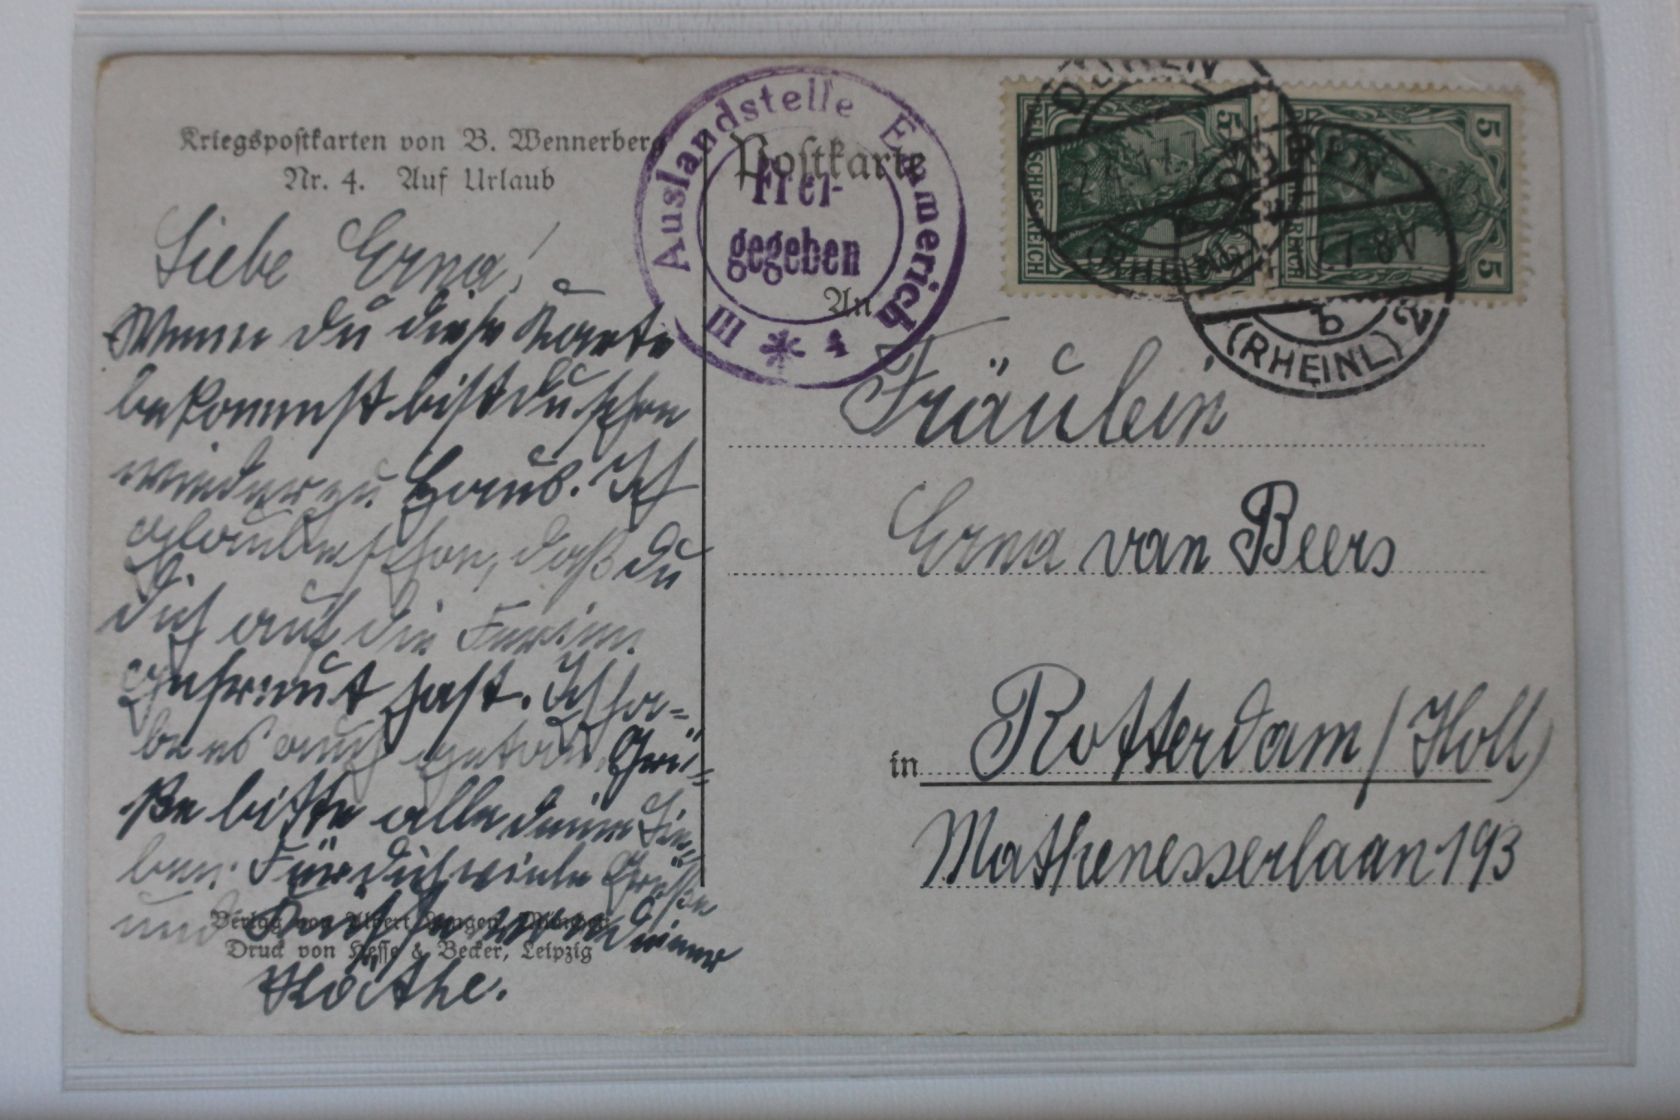 Kriegspostkarten von B. Wennerberg
Nr. 4. Auf Urlaub
Liebe Erna!
Wenn du diese Karte
bekommst bist du schon
wieder zu Haus. Ich
glaube schon, daß du
dich auf die Ferien
gefreut hast. Ich ha-
be es auch getan. Grü-
ße bitte alle deine Lie-
ben. Für dich viele Grüße
und von deiner
Käthe.
Verlag von Albert Langen, München
Druck von Hesse & Becker, Leipzig
Auslandstelle Emmerich
Frei-
gegeben
III * 4
Postkarte
An
Fräulein
Erna van Beers
in Rotterdam (Holl)
Mathenesserlaan 193
5 5
DEUTSCHES REICH
5 5
DÜREN
(RHEINL)
DÜREN
b
(RHEINL) 2